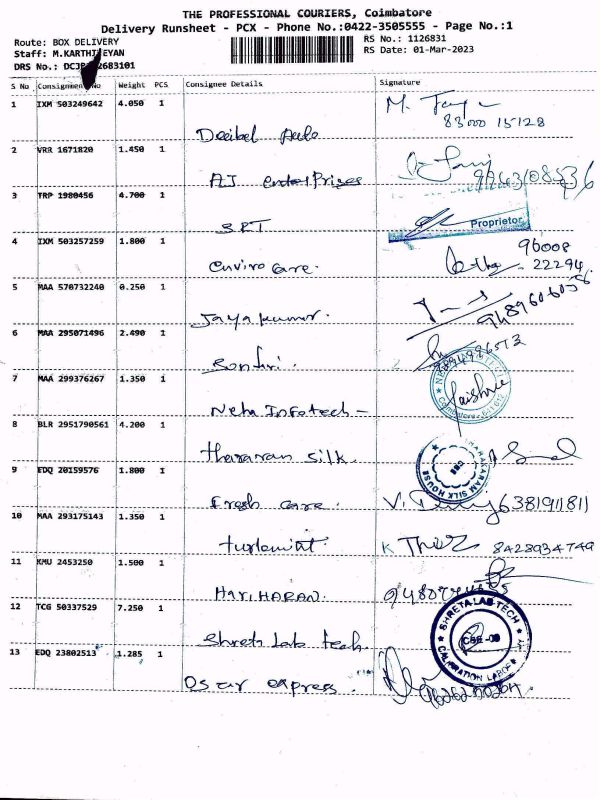 THE PROFESSIONAL COURIERS, Coimbatore
Delivery Runsheet - PCX - Phone No.:0422-3505555 - Page No.:1
Route: BOX DELIVERY
RS No.: 1126831
Staff: M.KARTHIKEYAN
RS Date: 01-Mar-2023
DRS No.: 2683101
S No Consignment No Weight PCS Consignee Details Signature
1 IXM 503249642 4.050 1
83000 15128
Decibel Auto
2 VRR 1671820 1.450 1
AJ enterprises
3 TRP 1980456 4.700 1
Proprietor
SPT
4 IXM 503257259 1.800 1
96008
enviro care. 22294
5 MAA 570732240 0.250 1
Jayakumar.
6 MAA 295071496 2.490 1
7 MAA 299376267 1.350 1
Neha Infotech -
8 BLR 2951790561 4.200 1
thararam silk.
9 EDQ 20159576 1.800 1
Fresh care. 6381911811
10 MAA 293175143 1.350 1
8428934749
11 KMU 2453250 1.500 1
HARIHARAN.
12 TCG 50337529 7.250 1
SHRETA LAB TECH
Shreta Lab tech.
13 EDQ 23802513 1.285 1
Oscar express.